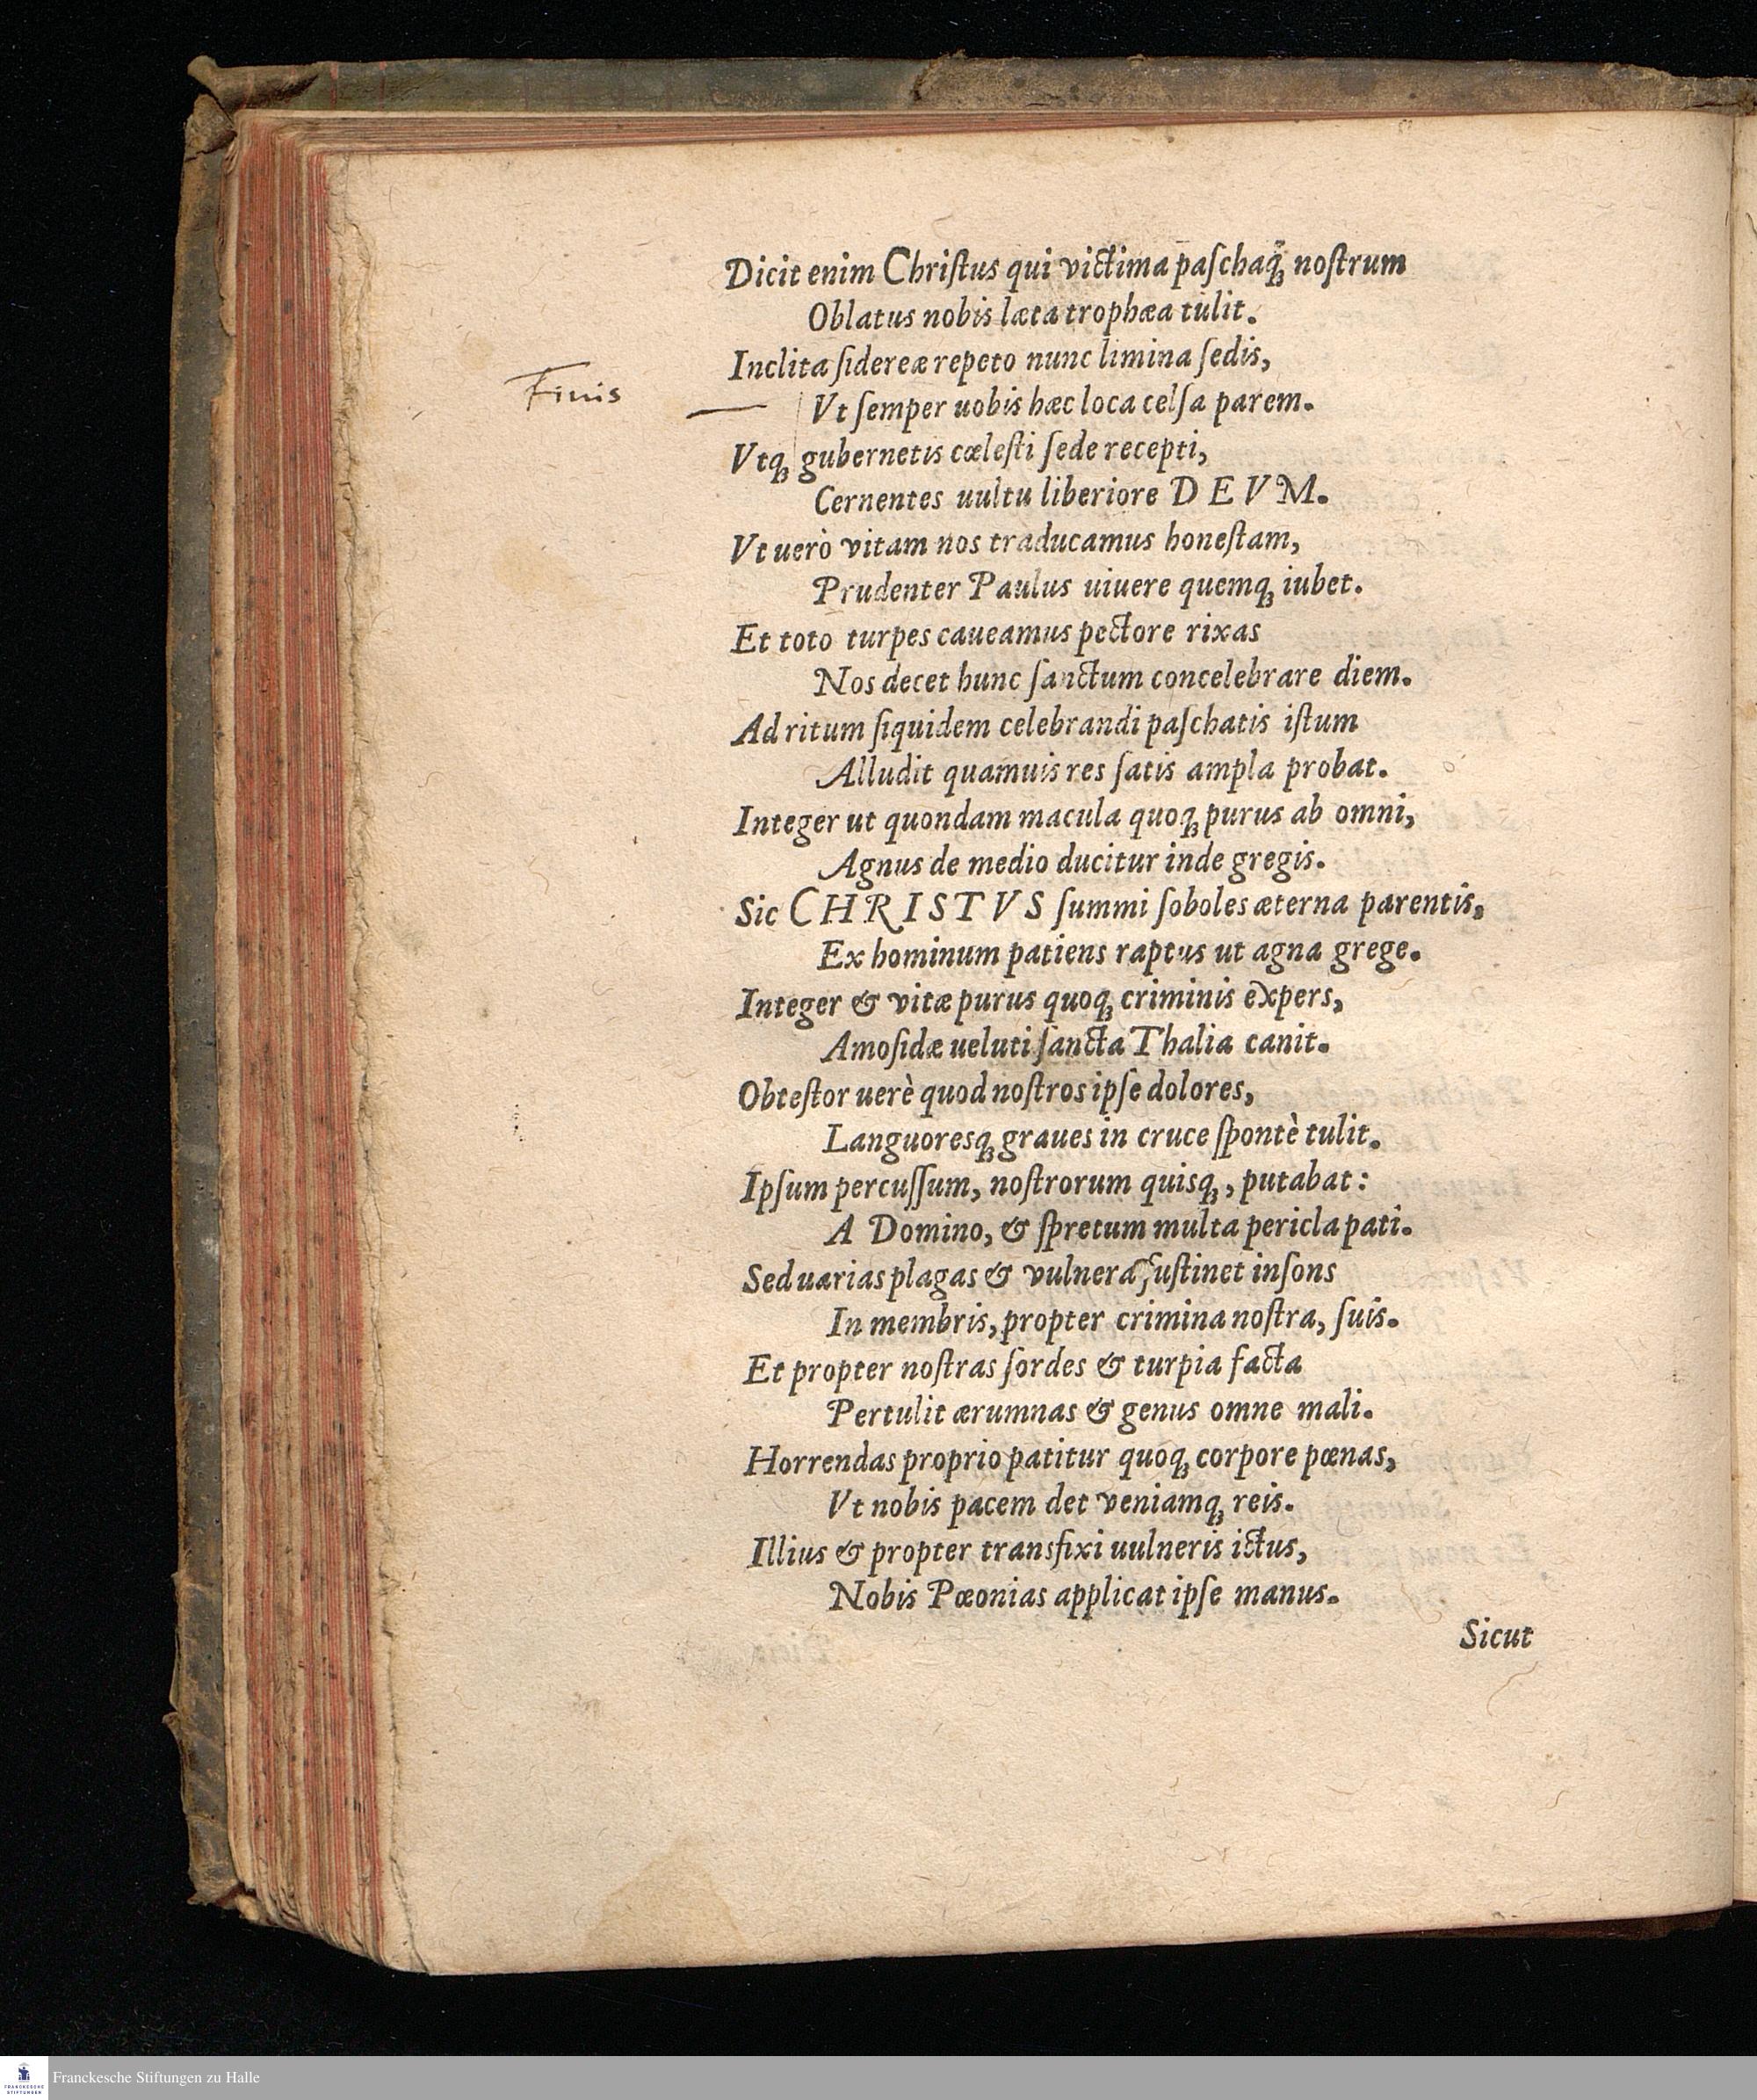 Dicit enim Chriſtus qui victima paſchaq́ꝫ noſtrum
Oblatus nobis læta trophæa tulit.
Inclita ſidereæ repeto nunc limina ſedis,
Finis
Vt ſemper uobis hæc loca celſa parem.
Vtqꝫ gubernetis cœleſti ſede recepti,
Cernentes uultu liberiore DEVM.
Vt uerò vitam nos traducamus honeſtam,
Prudenter Paulus uiuere quemqꝫ iubet.
Et toto turpes caueamus pectore rixas
Nos decet hunc ſanctum concelebrare diem.
Ad ritum ſiquidem celebrandi paſchatis iſtum
Alludit quamuis res ſatis ampla probat.
Integer ut quondam macula quoqꝫ purus ab omni,
Agnus de medio ducitur inde gregis.
Sic CHRISTVS ſummi ſoboles æterna parentis,
Ex hominum patiens raptus ut agna grege.
Integer & vitæ purus quoqꝫ criminis expers,
Amoſidæ ueluti ſancta Thalia canit.
Obteſtor uerè quod noſtros ipſe dolores,
Languoresqꝫ graues in cruce ſpontè tulit.
Ipſum percuſſum, noſtrorum quisqꝫ, putabat:
A Domino, & ſpretum multa pericla pati.
Sed uarias plagas & vulnera ſuſtinet inſons
In membris, propter crimina noſtra, ſuis.
Et propter noſtras ſordes & turpia facta
Pertulit ærumnas & genus omne mali.
Horrendas proprio patitur quoqꝫ corpore pœnas,
Vt nobis pacem det veniamqꝫ reis.
Illius & propter transfixi uulneris ictus,
Nobis Pæonias applicat ipſe manus.
Sicut
Franckesche Stiftungen zu Halle
FRANCKESCHE
STIFTUNGEN